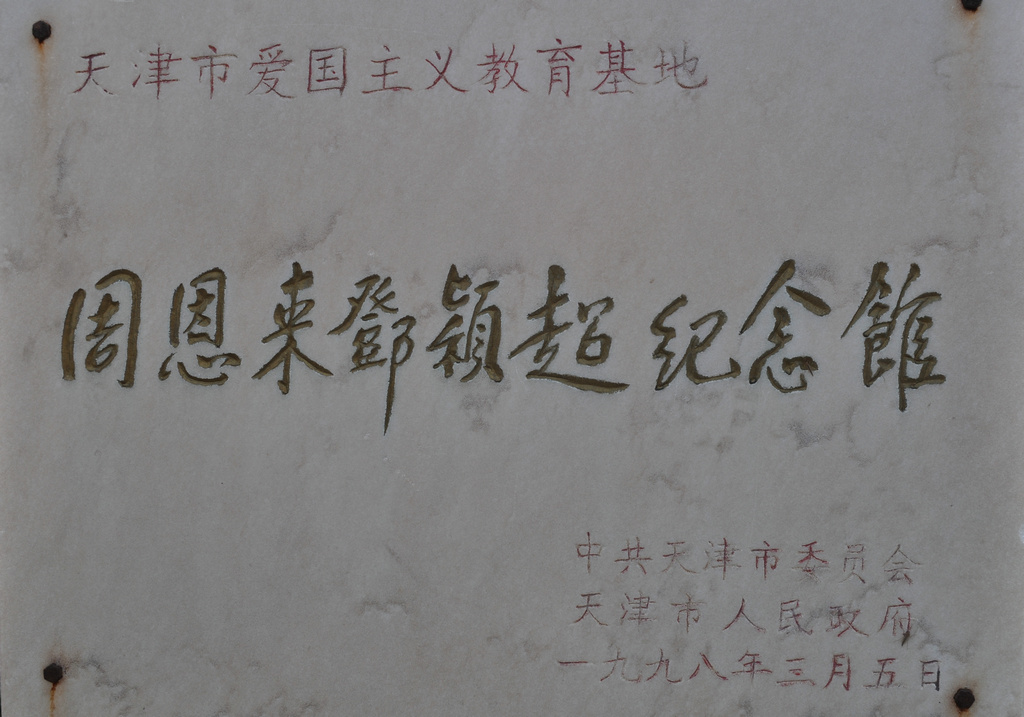 天津市爱国主义教育基地
周恩来鄧颖超纪念館
中共天津市委员会
天津市人民政府
一九九八年三月五日